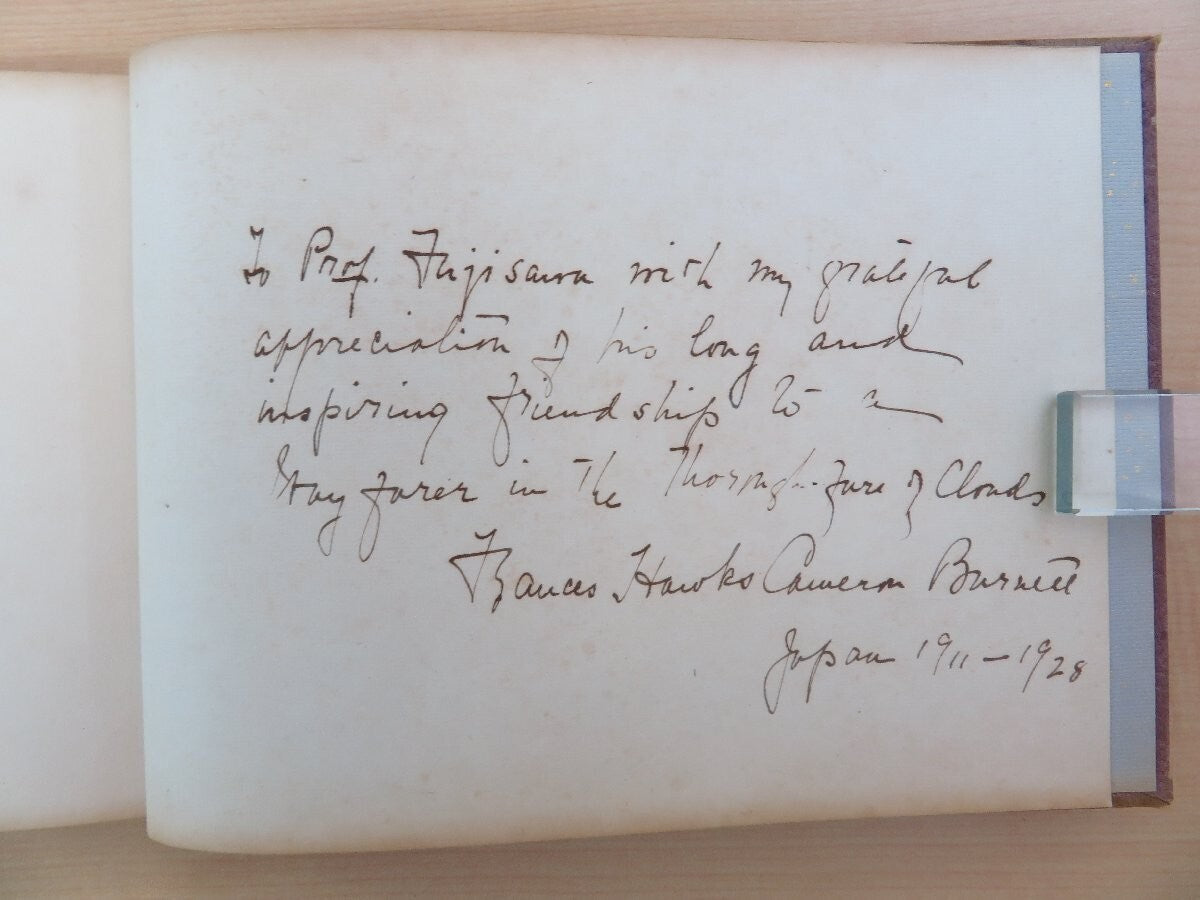 To Prof. Fujisawa with my grateful
appreciation of his long and
inspiring friendship to a
Wayfarer in the Thorough-fare of Clouds
Frances Hawks Cameron Burnett
Japan 1911–1928